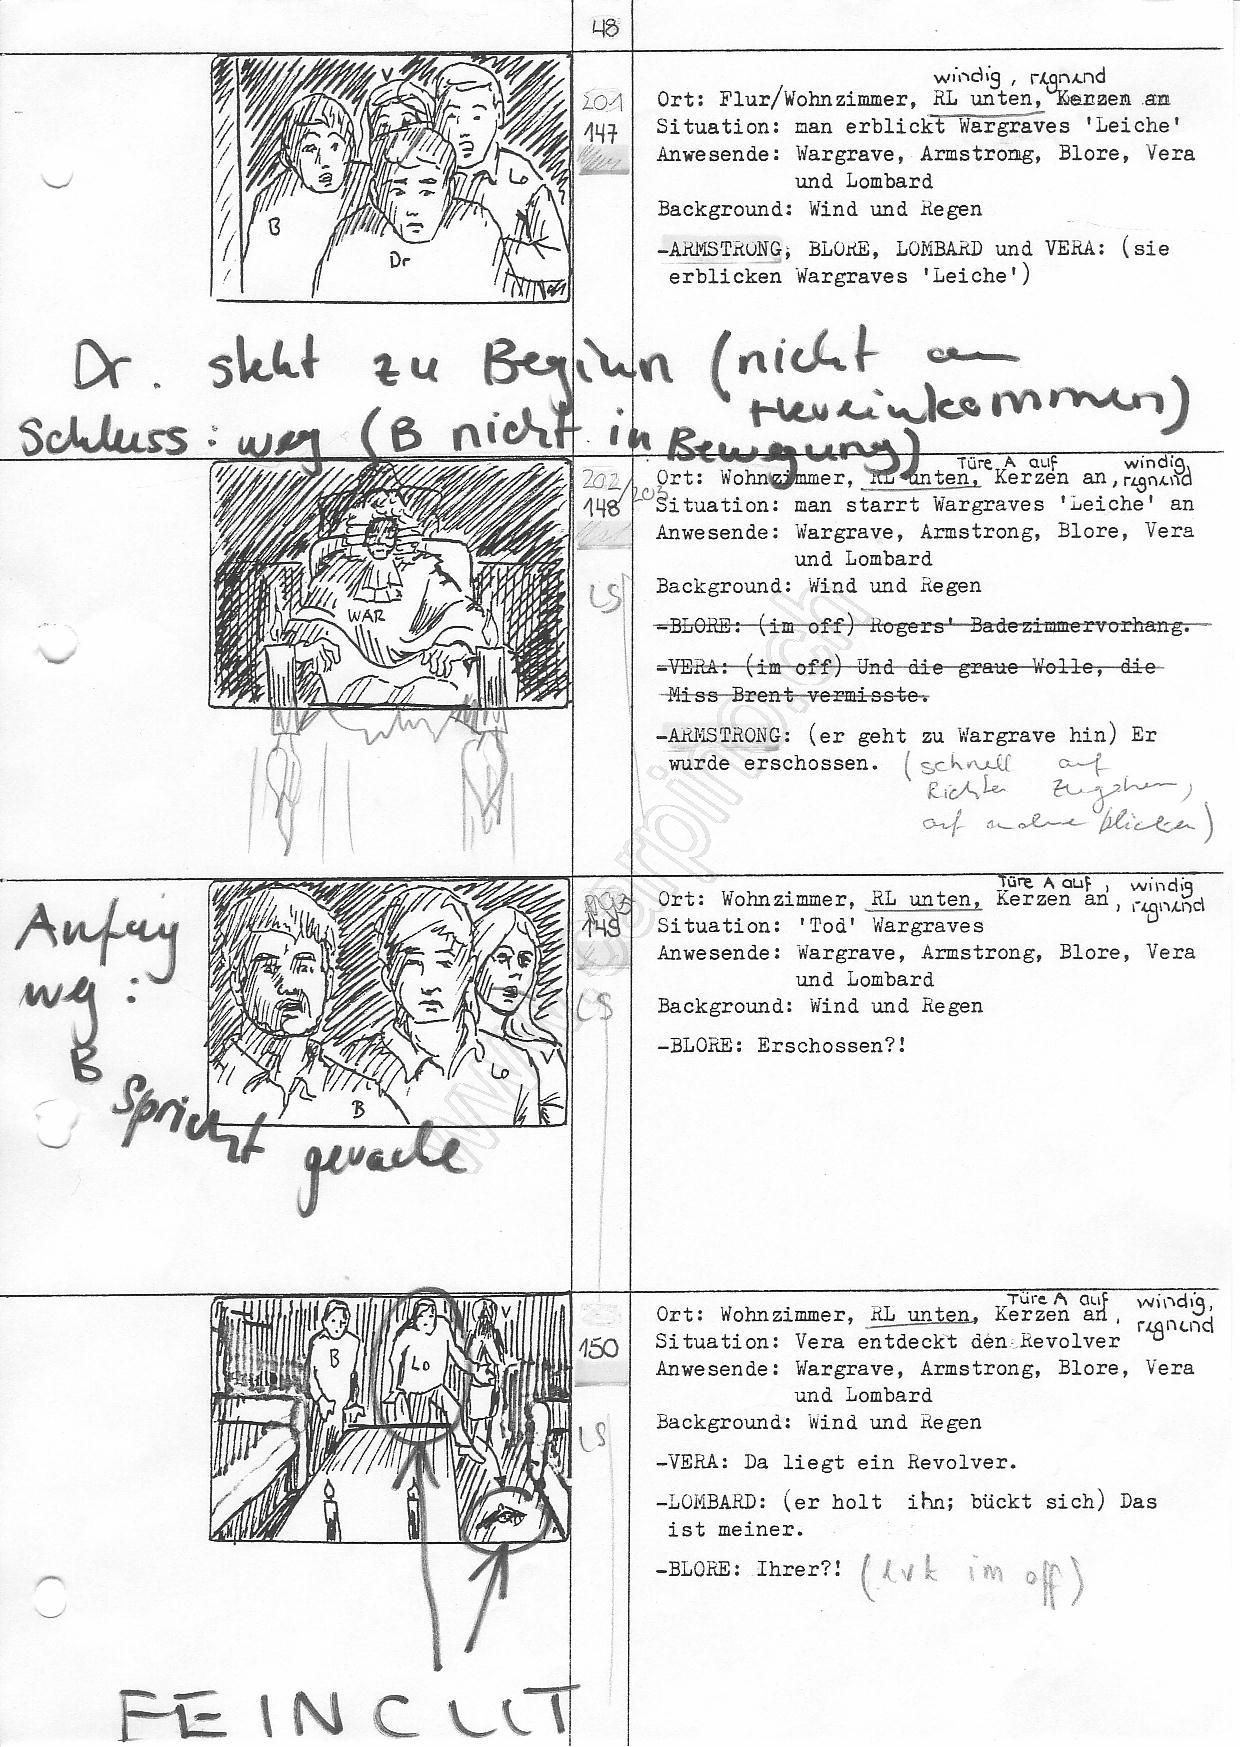 48
V
B
Dr
Lo
201
147
windig, regnend
Ort: Flur/Wohnzimmer, RL unten, Kerzen an
Situation: man erblickt Wargraves 'Leiche'
Anwesende: Wargrave, Armstrong, Blore, Vera
und Lombard
Background: Wind und Regen
-ARMSTRONG, BLORE, LOMBARD und VERA: (sie
erblicken Wargraves 'Leiche')
Dr. steht zu Beginn (nicht am
Hereinkommen)
Schluss: weg (B nicht in Bewegung)
WAR
202/203
148
LS
Türe A auf windig,
Ort: Wohnzimmer, RL unten, Kerzen an, regnend
Situation: man starrt Wargraves 'Leiche' an
Anwesende: Wargrave, Armstrong, Blore, Vera
und Lombard
Background: Wind und Regen
-BLORE: (im off) Rogers' Badezimmervorhang.
-VERA: (im off) Und die graue Wolle, die
Miss Brent vermisste.
-ARMSTRONG: (er geht zu Wargrave hin) Er
wurde erschossen. (schnell auf
Richter zugehen,
auf andere blicken)
Anfang
weg:
B
spricht gerade
B
Lo
V
149
LS
Türe A auf, windig
Ort: Wohnzimmer, RL unten, Kerzen an, regnend
Situation: 'Tod' Wargraves
Anwesende: Wargrave, Armstrong, Blore, Vera
und Lombard
Background: Wind und Regen
-BLORE: Erschossen?!
www.carpino.ch
B
Lo
V
150
LS
Türe A auf windig,
Ort: Wohnzimmer, RL unten, Kerzen an, regnend
Situation: Vera entdeckt den Revolver
Anwesende: Wargrave, Armstrong, Blore, Vera
und Lombard
Background: Wind und Regen
-VERA: Da liegt ein Revolver.
-LOMBARD: (er holt ihn; bückt sich) Das
ist meiner.
-BLORE: Ihrer?! (im off)
FEINCUT